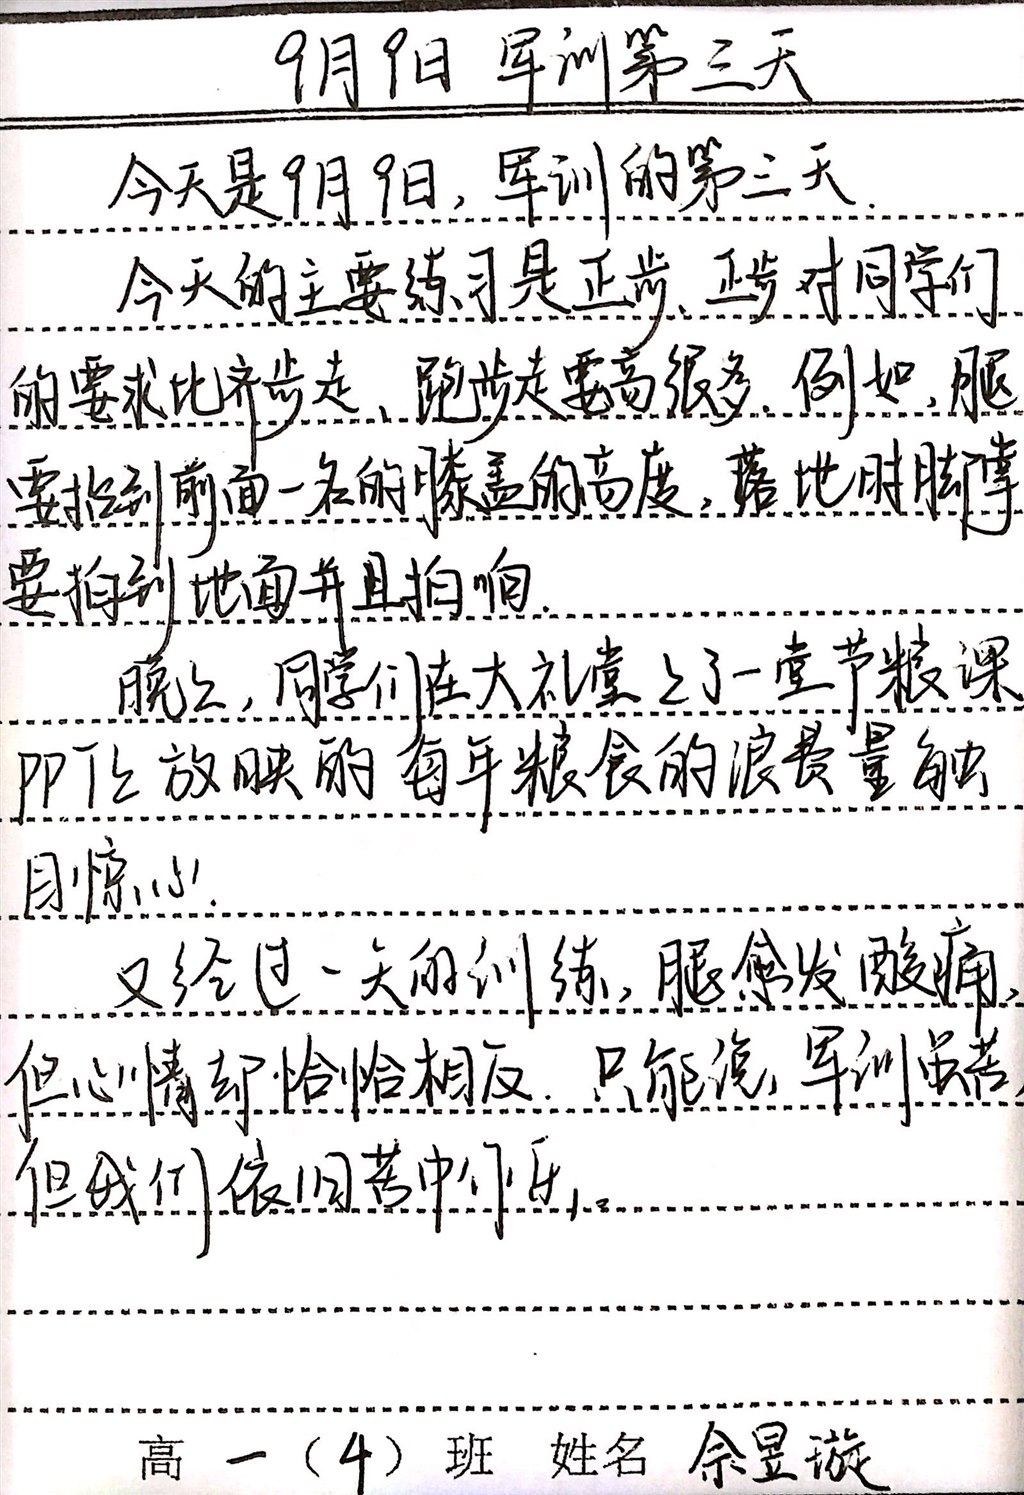 9月9日 军训第三天
今天是9月9日，军训的第三天.
今天的主要练习是正步、正步对同学们
的要求比齐步走、跑步走要高很多. 例如，腿
要抬到前面一名的膝盖的高度，落地时脚掌
要拍到地面并且拍响.
晚上，同学们在大礼堂上了一堂节粮课
PPT上放映的每年粮食的浪费量触
目惊心.
又经过一天的训练，腿愈发酸痛，
但心情却恰恰相反. 只能说，军训虽苦，
但我们依旧苦中作乐。
高一（4）班 姓名 佘昱璇